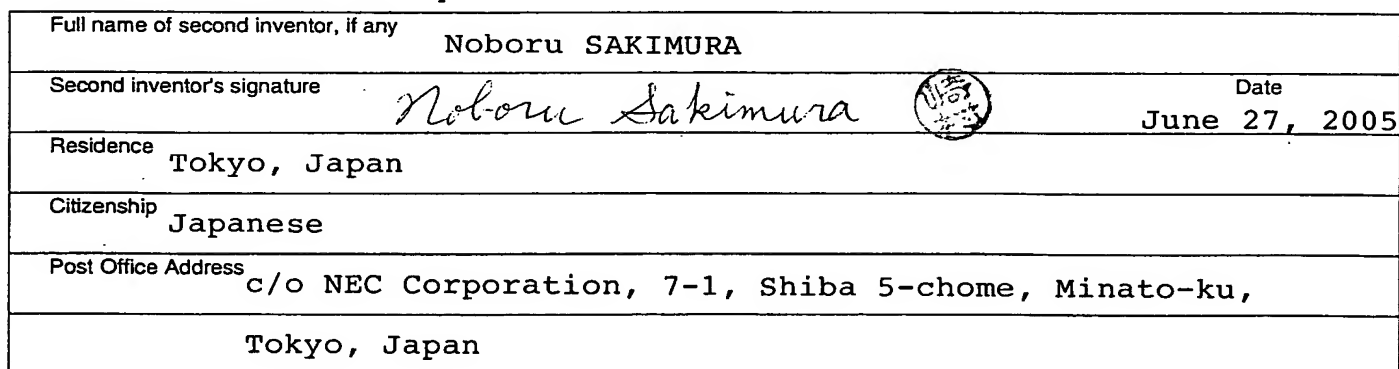 Full name of second inventor, if any Noboru SAKIMURA
Second inventor's signature Noboru Sakimura Date
June 27, 2005
Residence Tokyo, Japan
Citizenship Japanese
Post Office Address c/o NEC Corporation, 7-1, Shiba 5-chome, Minato-ku,
Tokyo, Japan